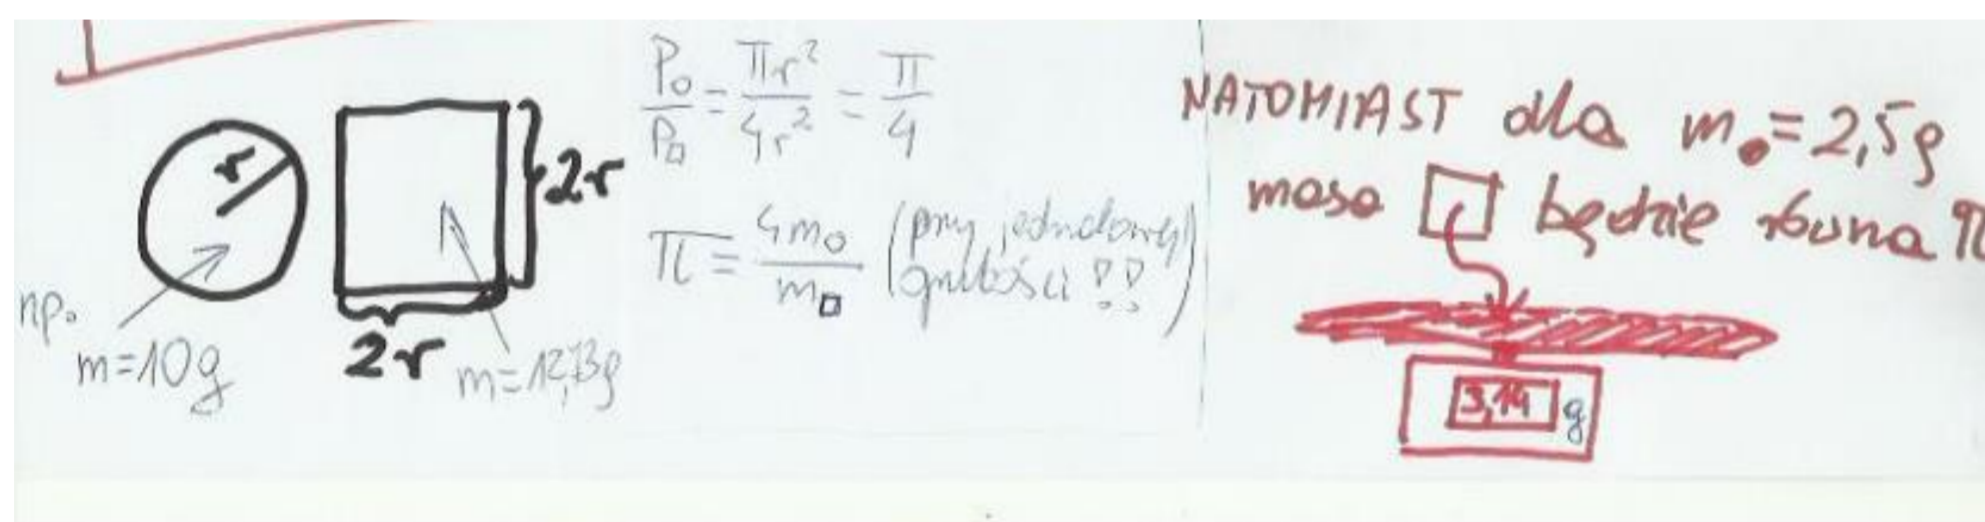 r
2r
2r
np.
m=10g
m=12,73g
P○/P□ = πr²/4r² = π/4
π = 4m○/m□ (przy jednakowej
grubości !!)
NATOMIAST dla m●=2,5g
masa □ będzie równa π
3,14 g